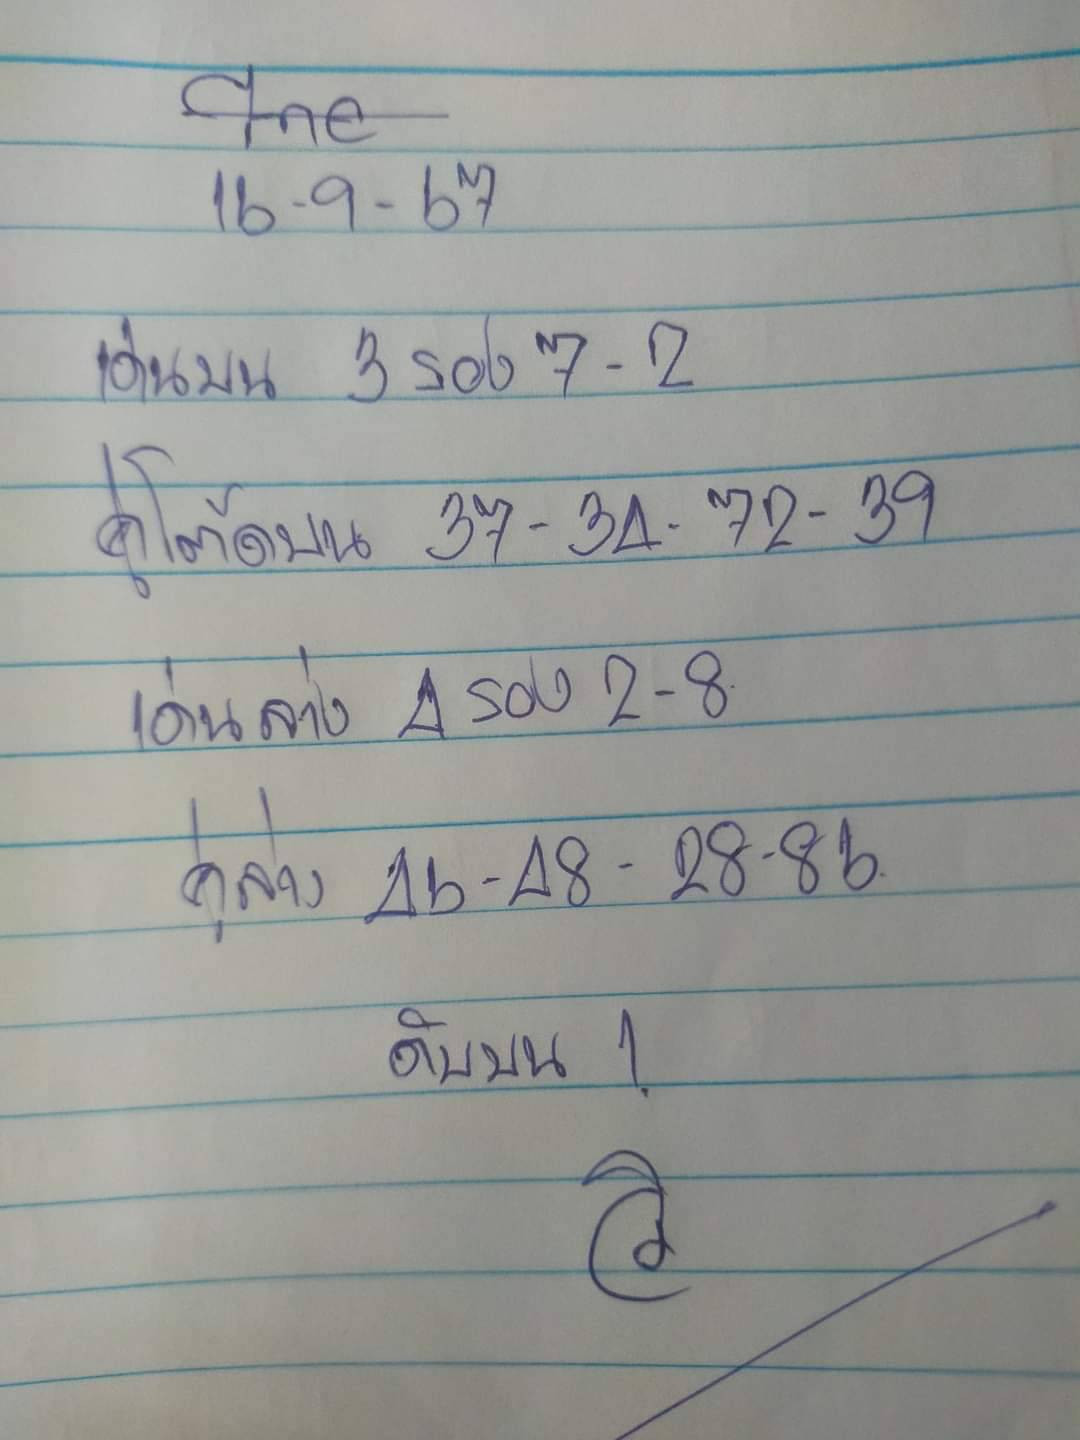 16-9-67
เด่นบน 3 รอง 7-2
คู่โต๊ดบน 37-34-72-39
เด่นล่าง 4 รอง 2-8
คู่ล่าง 46-48-28-86
ดับบน 1